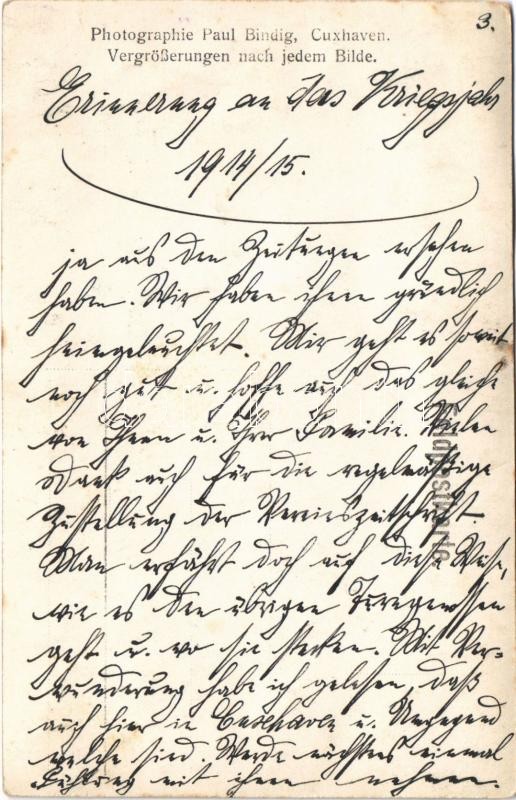 3.
Photographie Paul Bindig, Cuxhaven.
Vergrößerungen nach jedem Bilde.
Erinnerung an das Kriegsjahr
1914/15.
ja aus den Zeitungen ersehen
haben. Wir haben ihnen gründlich
heimgeleuchtet. Mir geht es soweit
noch gut u. hoffe auch das gleiche
von Ihnen u. Ihrer Familie. Vielen
Dank auch für die regelmäßige
Zustellung der Vereinszeitschrift.
Man erfährt doch auf diese Weise,
wie es den übrigen Turngenossen
geht u. wo sie stecken. Mit Ver-
wunderung habe ich gelesen, daß
auch hier in Cuxhaven u. Umgegend
welche sind. Werde nächstens einmal
Fühlung mit ihnen nehmen.
Feldpostkarte